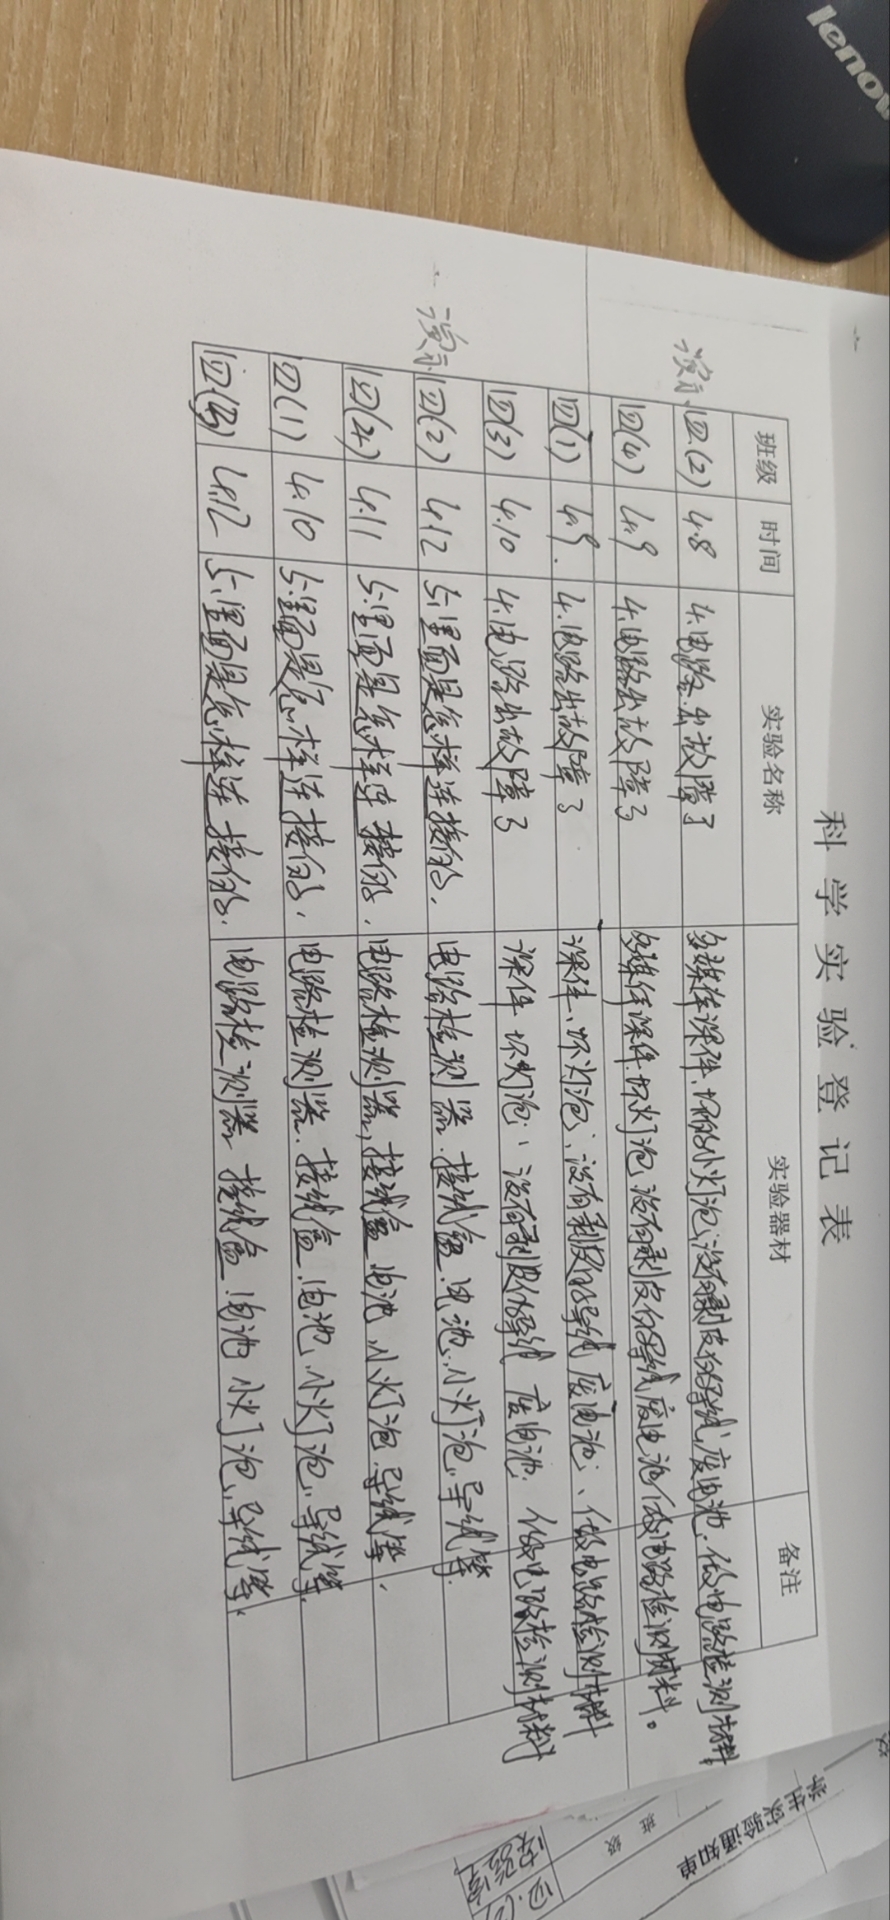 lenov
科学实验登记表
班级 时间 实验名称 实验器材 备注
演示 四(2) 4.8 4.电路出故障了 多媒体课件、坏的小灯泡、没有剥皮的导线、废电池、做电路检测材料
四(4) 4.9 4.电路出故障了 多媒体课件.坏灯泡 没有剥皮的导线 废电池 做电路检测材料。
四(1) 4.9. 4.电路出故障了 课件、坏灯泡、没有剥皮的导线 废电池、做电路检测材料
四(3) 4.10 4.电路出故障了 课件 坏灯泡、没有剥皮的导线 废电池. 做电路检测材料
演示 四(2) 4.12 5.里面是怎样连接的. 电路检测器.接线盒.电池.小灯泡.导线等.
四(4) 4.11 5.里面是怎样连接的. 电路检测器,接线盒 电池 小灯泡.导线等.
四(1) 4.10 5.里面是怎样连接的. 电路检测器.接线盒.电池、小灯泡.导线等.
四(3) 4.12 5.里面是怎样连接的. 电路检测器 接线盒.电池 小灯泡.导线等.
学生实验通知单
班级
四.(2)